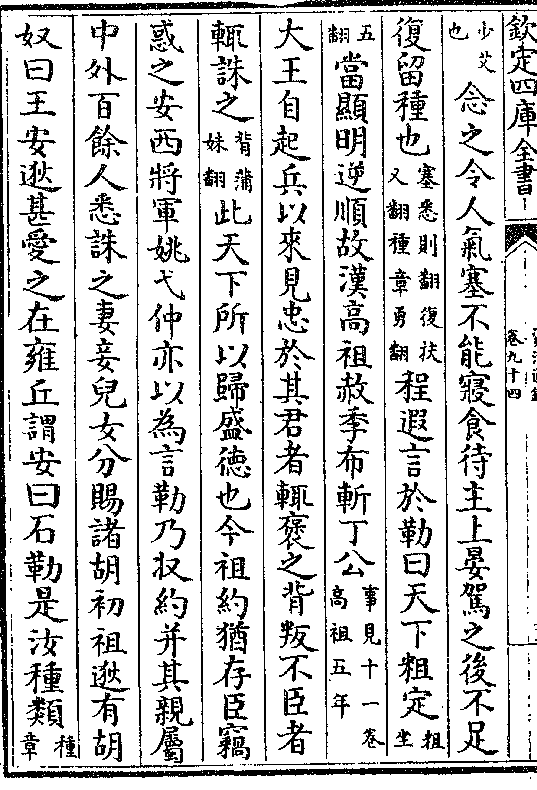 欽定四庫全書
卷九十四
少艾也念之令人氣塞不能寢食待主上晏駕之後不足
復留種也塞悉則翻復扶又翻種章勇翻程遐言於勒曰天下粗定粗坐
五翻當顯明逆順故漢高祖赦季布斬丁公事見十一卷高祖五年
大王自起兵以來見忠於其君者輒褒之背叛不臣者
輒誅之背蒲妹翻此天下所以歸盛德也今祖約猶存臣竊
惑之安西將軍姚弋仲亦以為言勒乃收約并其親屬
中外百餘人悉誅之妻妾兒女分賜諸胡初祖逖有胡
奴曰王安逖甚愛之在雍丘謂安曰石勒是汝種類種章